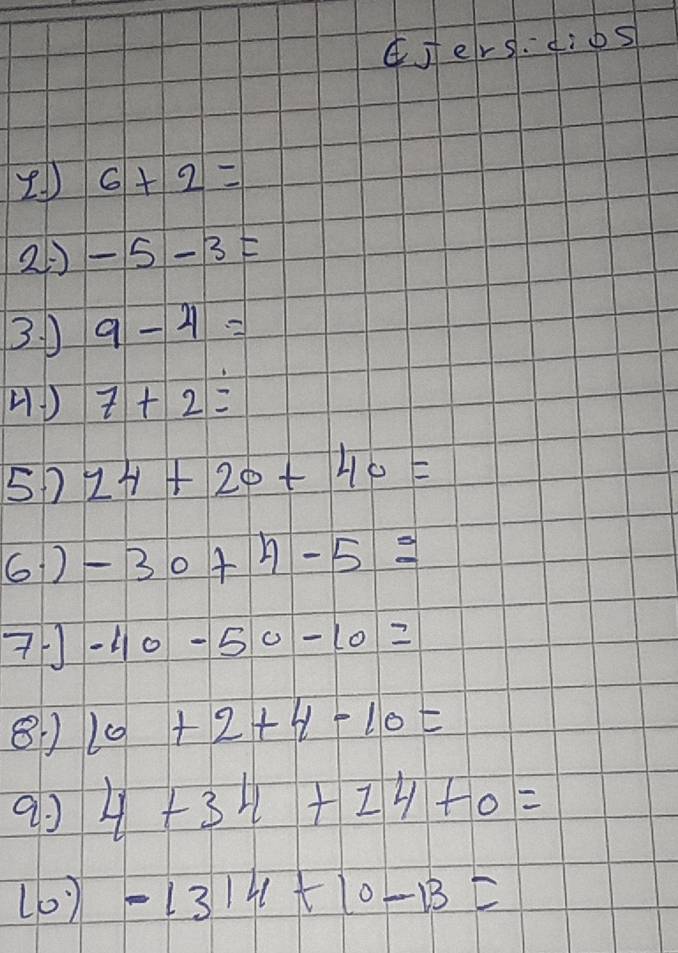 Ejersicios
1.) 6 + 2 =
2.) - 5 - 3 =
3.) 9 - 4 =
4.) 7 + 2 =
5.) 14 + 20 + 40 =
6.) - 30 + 4 - 5 =
7.) - 40 - 50 - 10 =
8.) 10 + 2 + 4 - 10 =
9.) 4 + 34 + 14 + 0 =
10.) - 1314 + 10 - 13 =